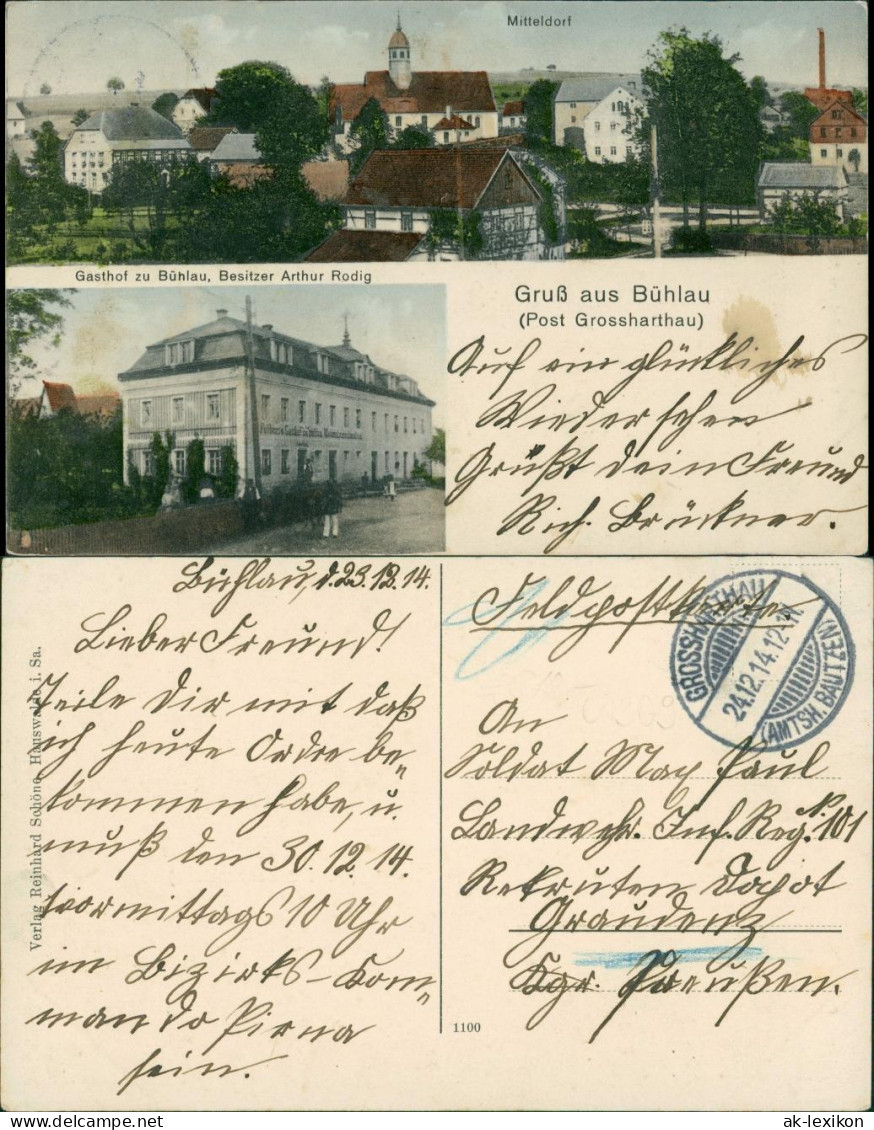 Mitteldorf
Gasthof zu Bühlau, Besitzer Arthur Rodig
Gruß aus Bühlau
(Post Grossharthau)
Auf ein glückliches
Wiedersehen
Grüßt dein Freund
Rich. Brückner.
Bühlau, d. 23.12.14.
Lieber Freund!
Teile Dir mit daß
ich heute Ordre be-
kommen habe, u.
muß den 30.12.14.
vormittags 10 Uhr
im Bizirks-Kom-
mando Pirna
sein.
Verlag Reinhard Schöne, Hauswalde i. Sa.
1100
Feldpostkarte
GROSSHARTHAU
24.12.14.12-1N.
(AMTSH. BAUTZEN)
An
Soldat Max Paul
Landwehr. Inf. Reg. No. 101
Rekruten Depot
Graudenz
Kgr. Preußen.
ak-lexikon